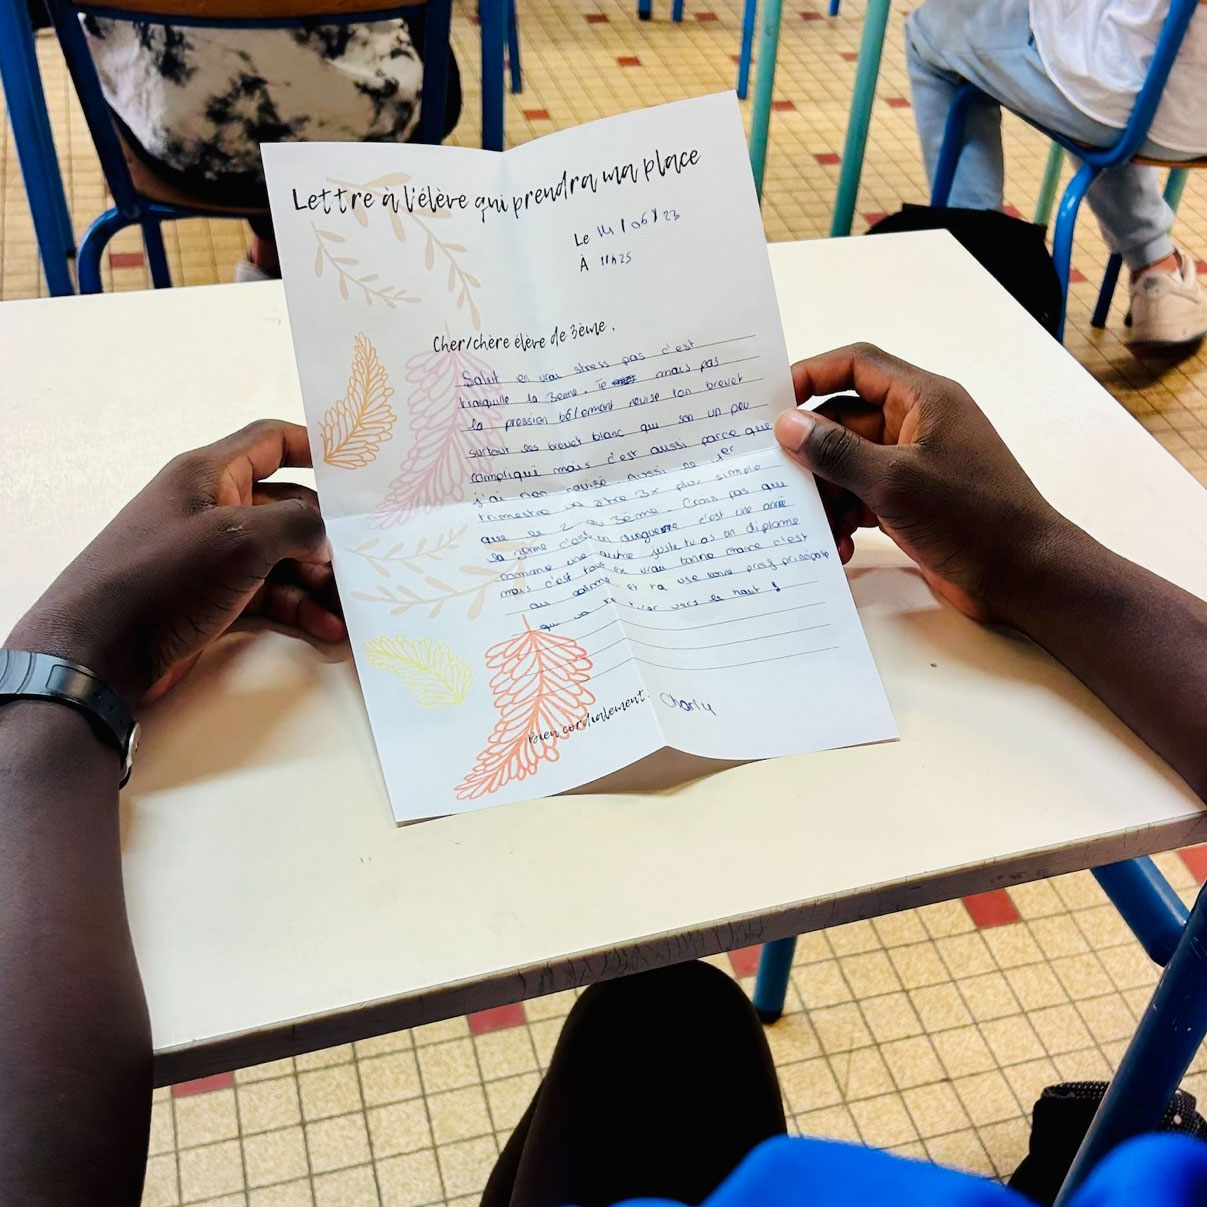 Lettre à l'élève qui prendra ma place
Le 14/06/23
À 11h25
Cher/chère élève de 3ème,
Salut en vrai stress pas c'est
tranquille la 3eme. mais pas
la pression bêtement revise ton brevet
surtout brevet blanc qui son un peu
compliqué mais c'est aussi parce que
j'ai revise Aussi 1er
trimestre être 3x plus simple
que 2 3ème. Crois pas que
la 3eme c'est c'est une année
comme une autre juste tu as un diplome
mais c'est tout en vrai bonne chance c'est
calme et ta une bonne prof principale
qui va tirer vers le haut !
Bien cordialement, Charly